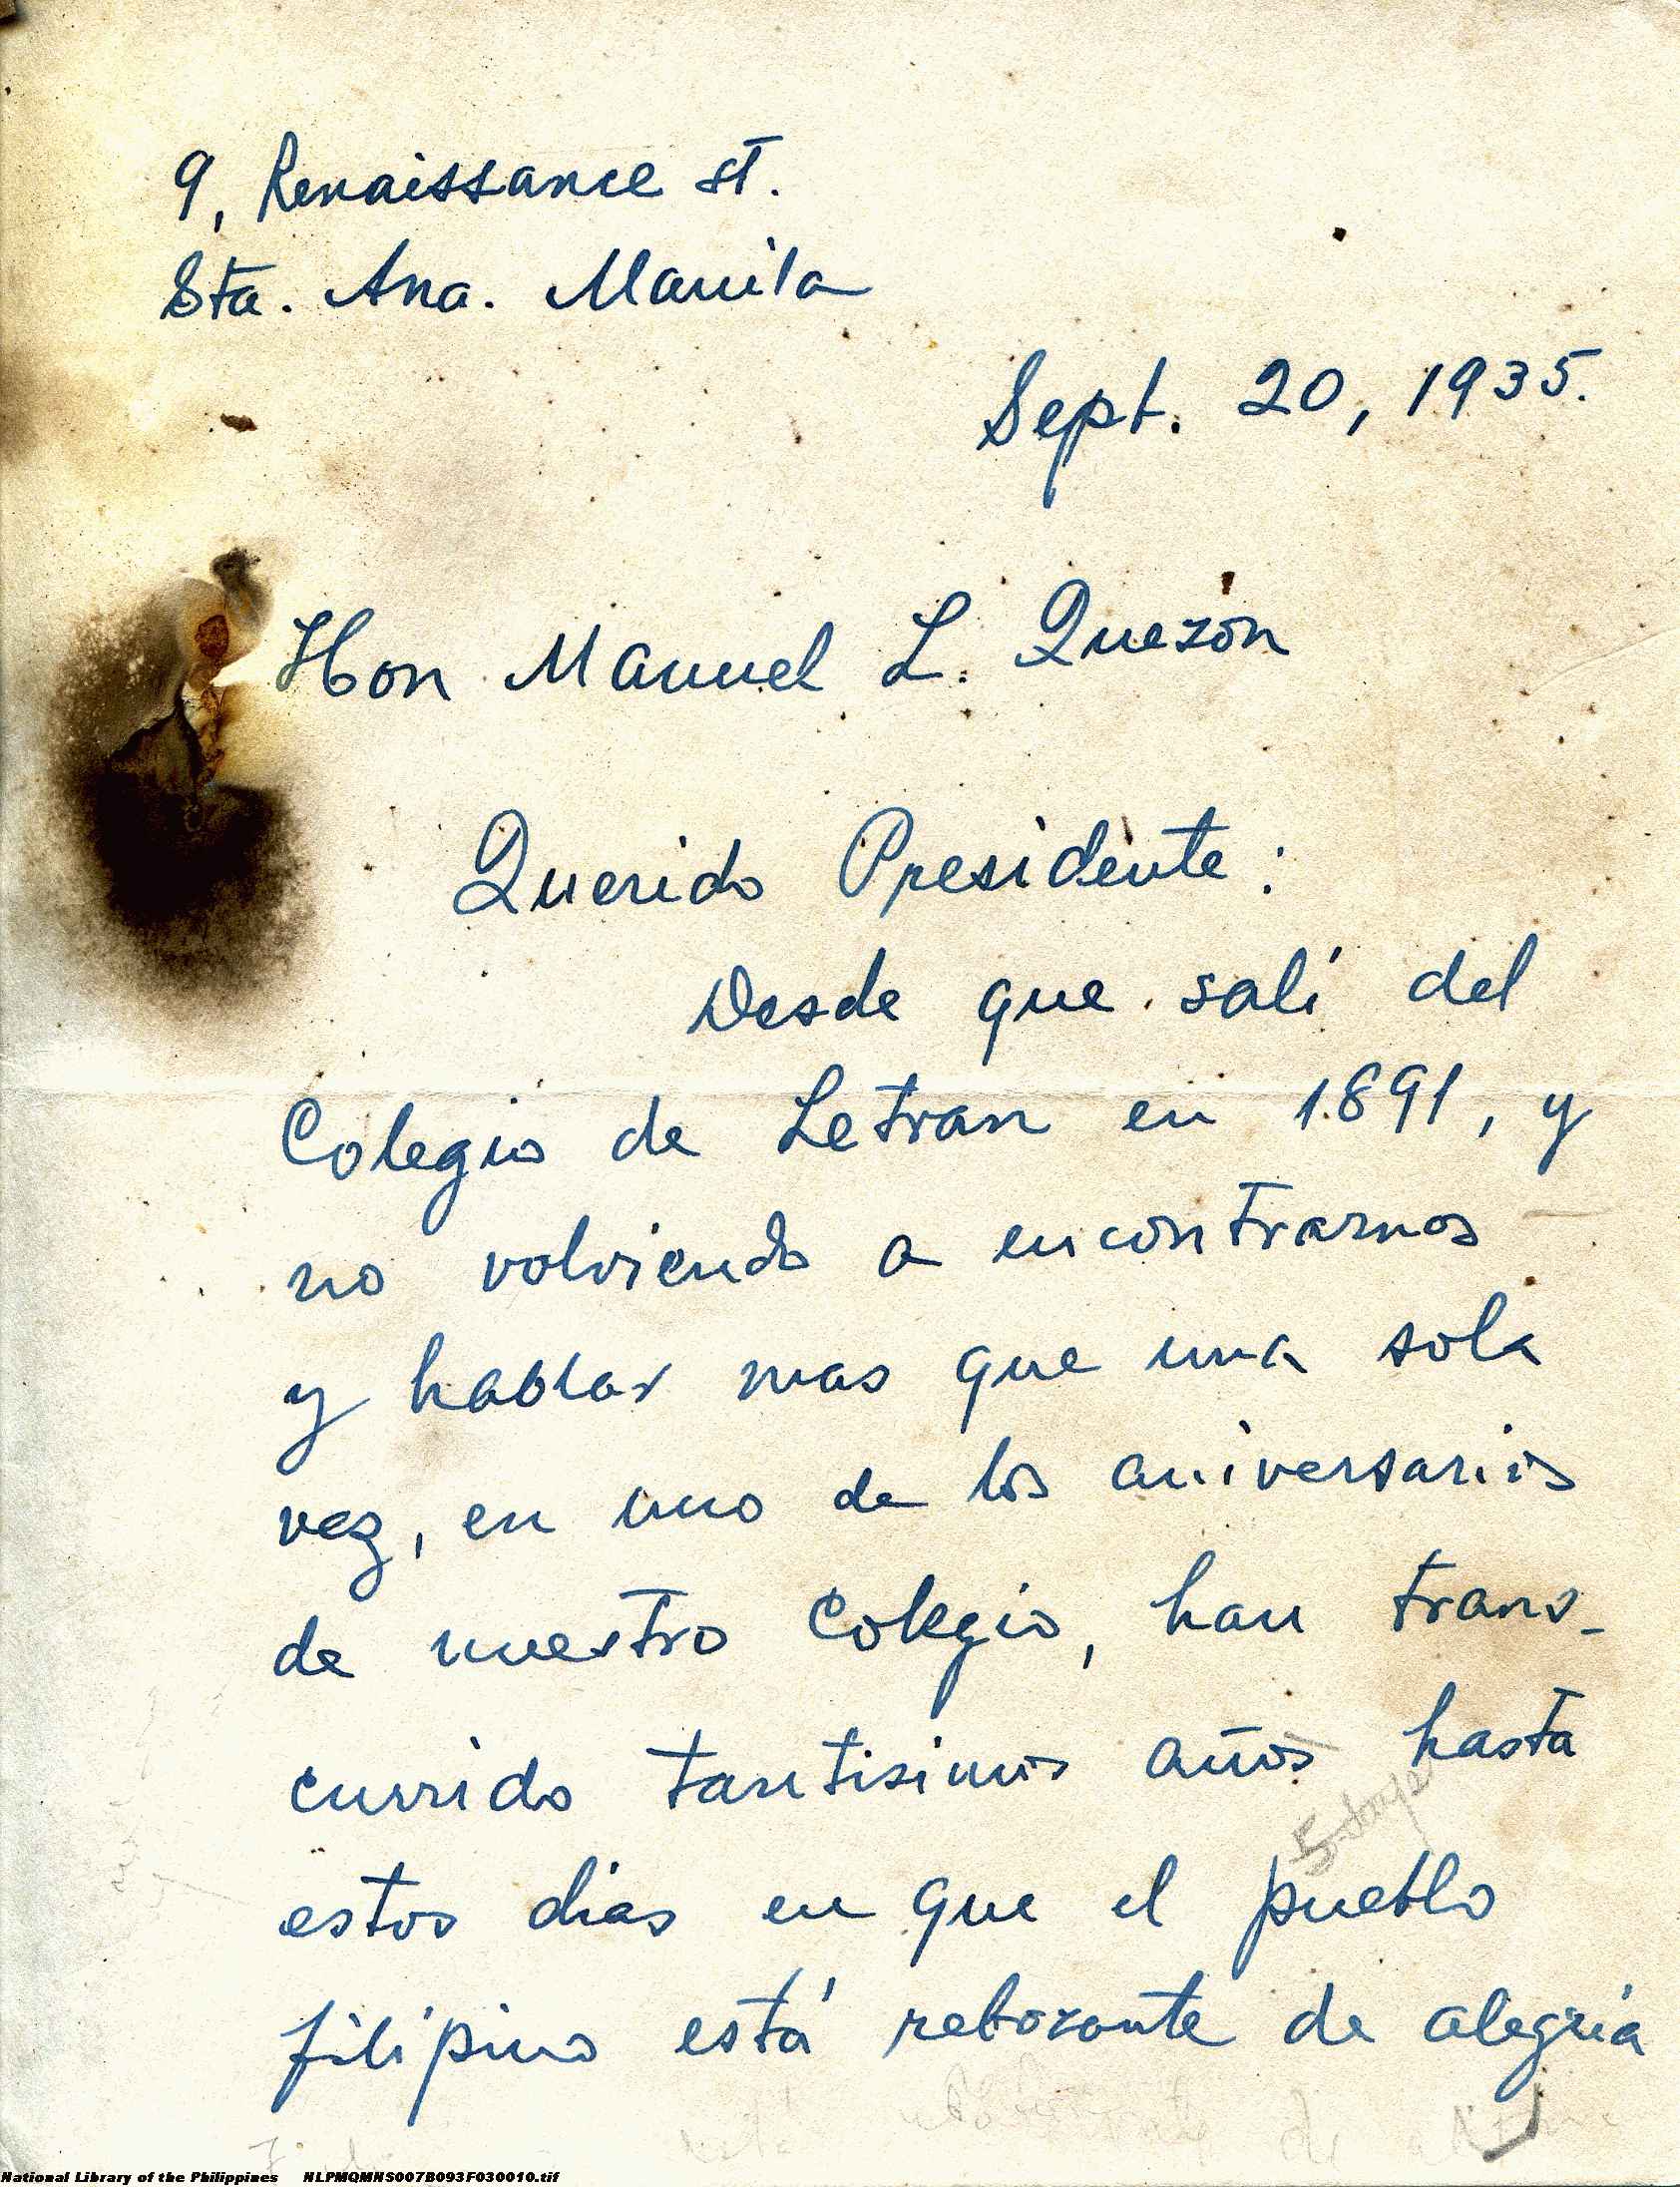 9, Renaissance st.
Sta. Ana. Manila
Sept. 20, 1935.
Hon Manuel L. Quezon
Querido Presidente:
Desde que salí del
Colegio de Letran en 1891, y
no volviendo a encontrarnos
y hablar mas que una sola
vez, en uno de los aniversarios
de nuestro Colegio, han trans-
currido tantisimos años hasta
5 days
estos dias en que el pueblo
filipino está rebozante de alegría
National Library of the Philippines NLPMQMNS007B093F030010.tif